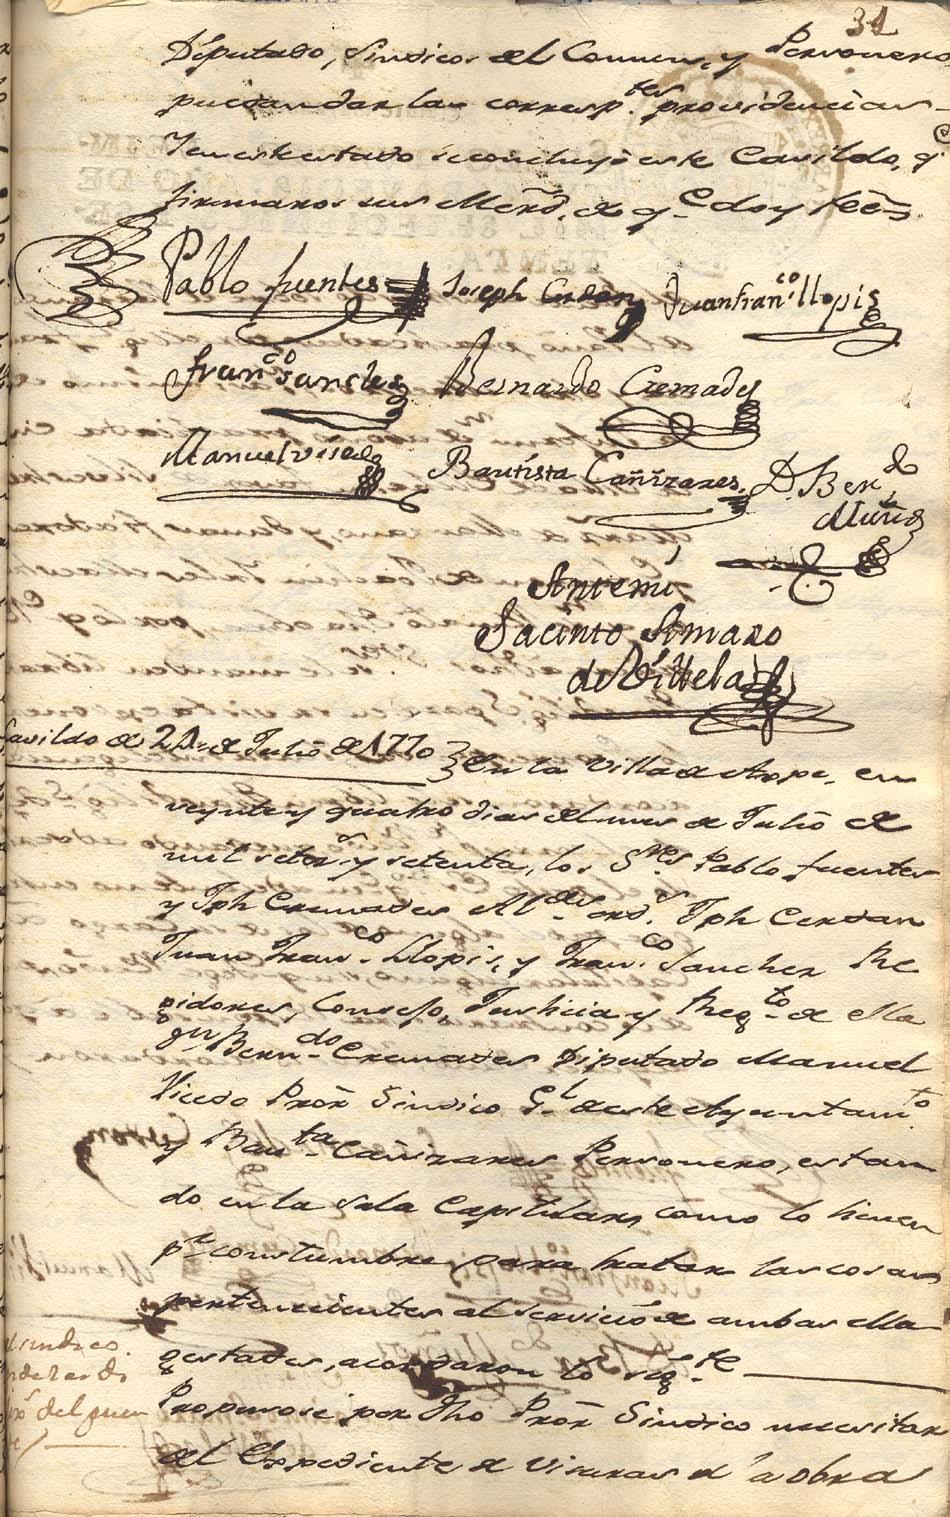 31
Diputado, Sindicos del Comun, y Personero
puedan dar las corresp.tes providencias
Y en este estado se concluyó este Cavildo, q.e
firmaron sus Merd.s de q.e doy fee
Pablo fuentes Joseph Cerdan Juan fran.co llopis
fran.co sanches Bernardo Cremades
Manuel visedo Bautista Cañizares D. Ber.do
Muñoz
Antemi
Jacinto Amaro
de Vittela
Cavildo de 24 de Julio de 1770 En la Villa de Aspe, en
veynte y quatro dias del mes de Julio de
mil setez.s y setenta, los S.res Pablo fuentes
y Jph Cremades Al.des ord.s Jph Cerdan
Juan Fran.co Llopis, y Fran.co Sanchez Re
gidores, Consejo, Justicia y Reg.to de ella
Bern.do Cremades Diputado Manuel
Vicedo Pròr Sindico G.l de este Ayuntam.to
y Bau.ta Cañizares Personero, estan
do en la Sala Capitular, como lo tienen
p.r constumbre, para tratar las cosas
pertenecientes al servicio de ambas Ma
gestades, acordaron lo sig.te
Propusose por dho Pròr Sindico necesitar
del Expediente de Visuras de la obra
sindico
del puen
te